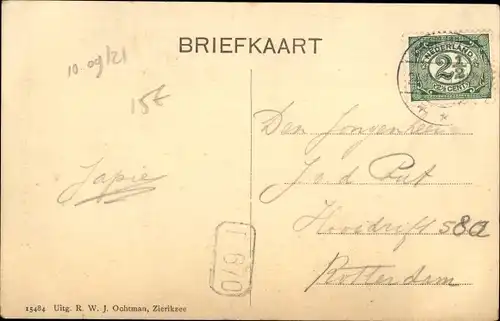 BRIEFKAART
10.09/21
15£
NEDERLAND
2½
2½ CENT
Den Jongenheer
J. v d Put
Hooidrift 58a
Rotterdam
Japie
T 670
15484 Uitg. R. W. J. Ochtman, Zierikzee